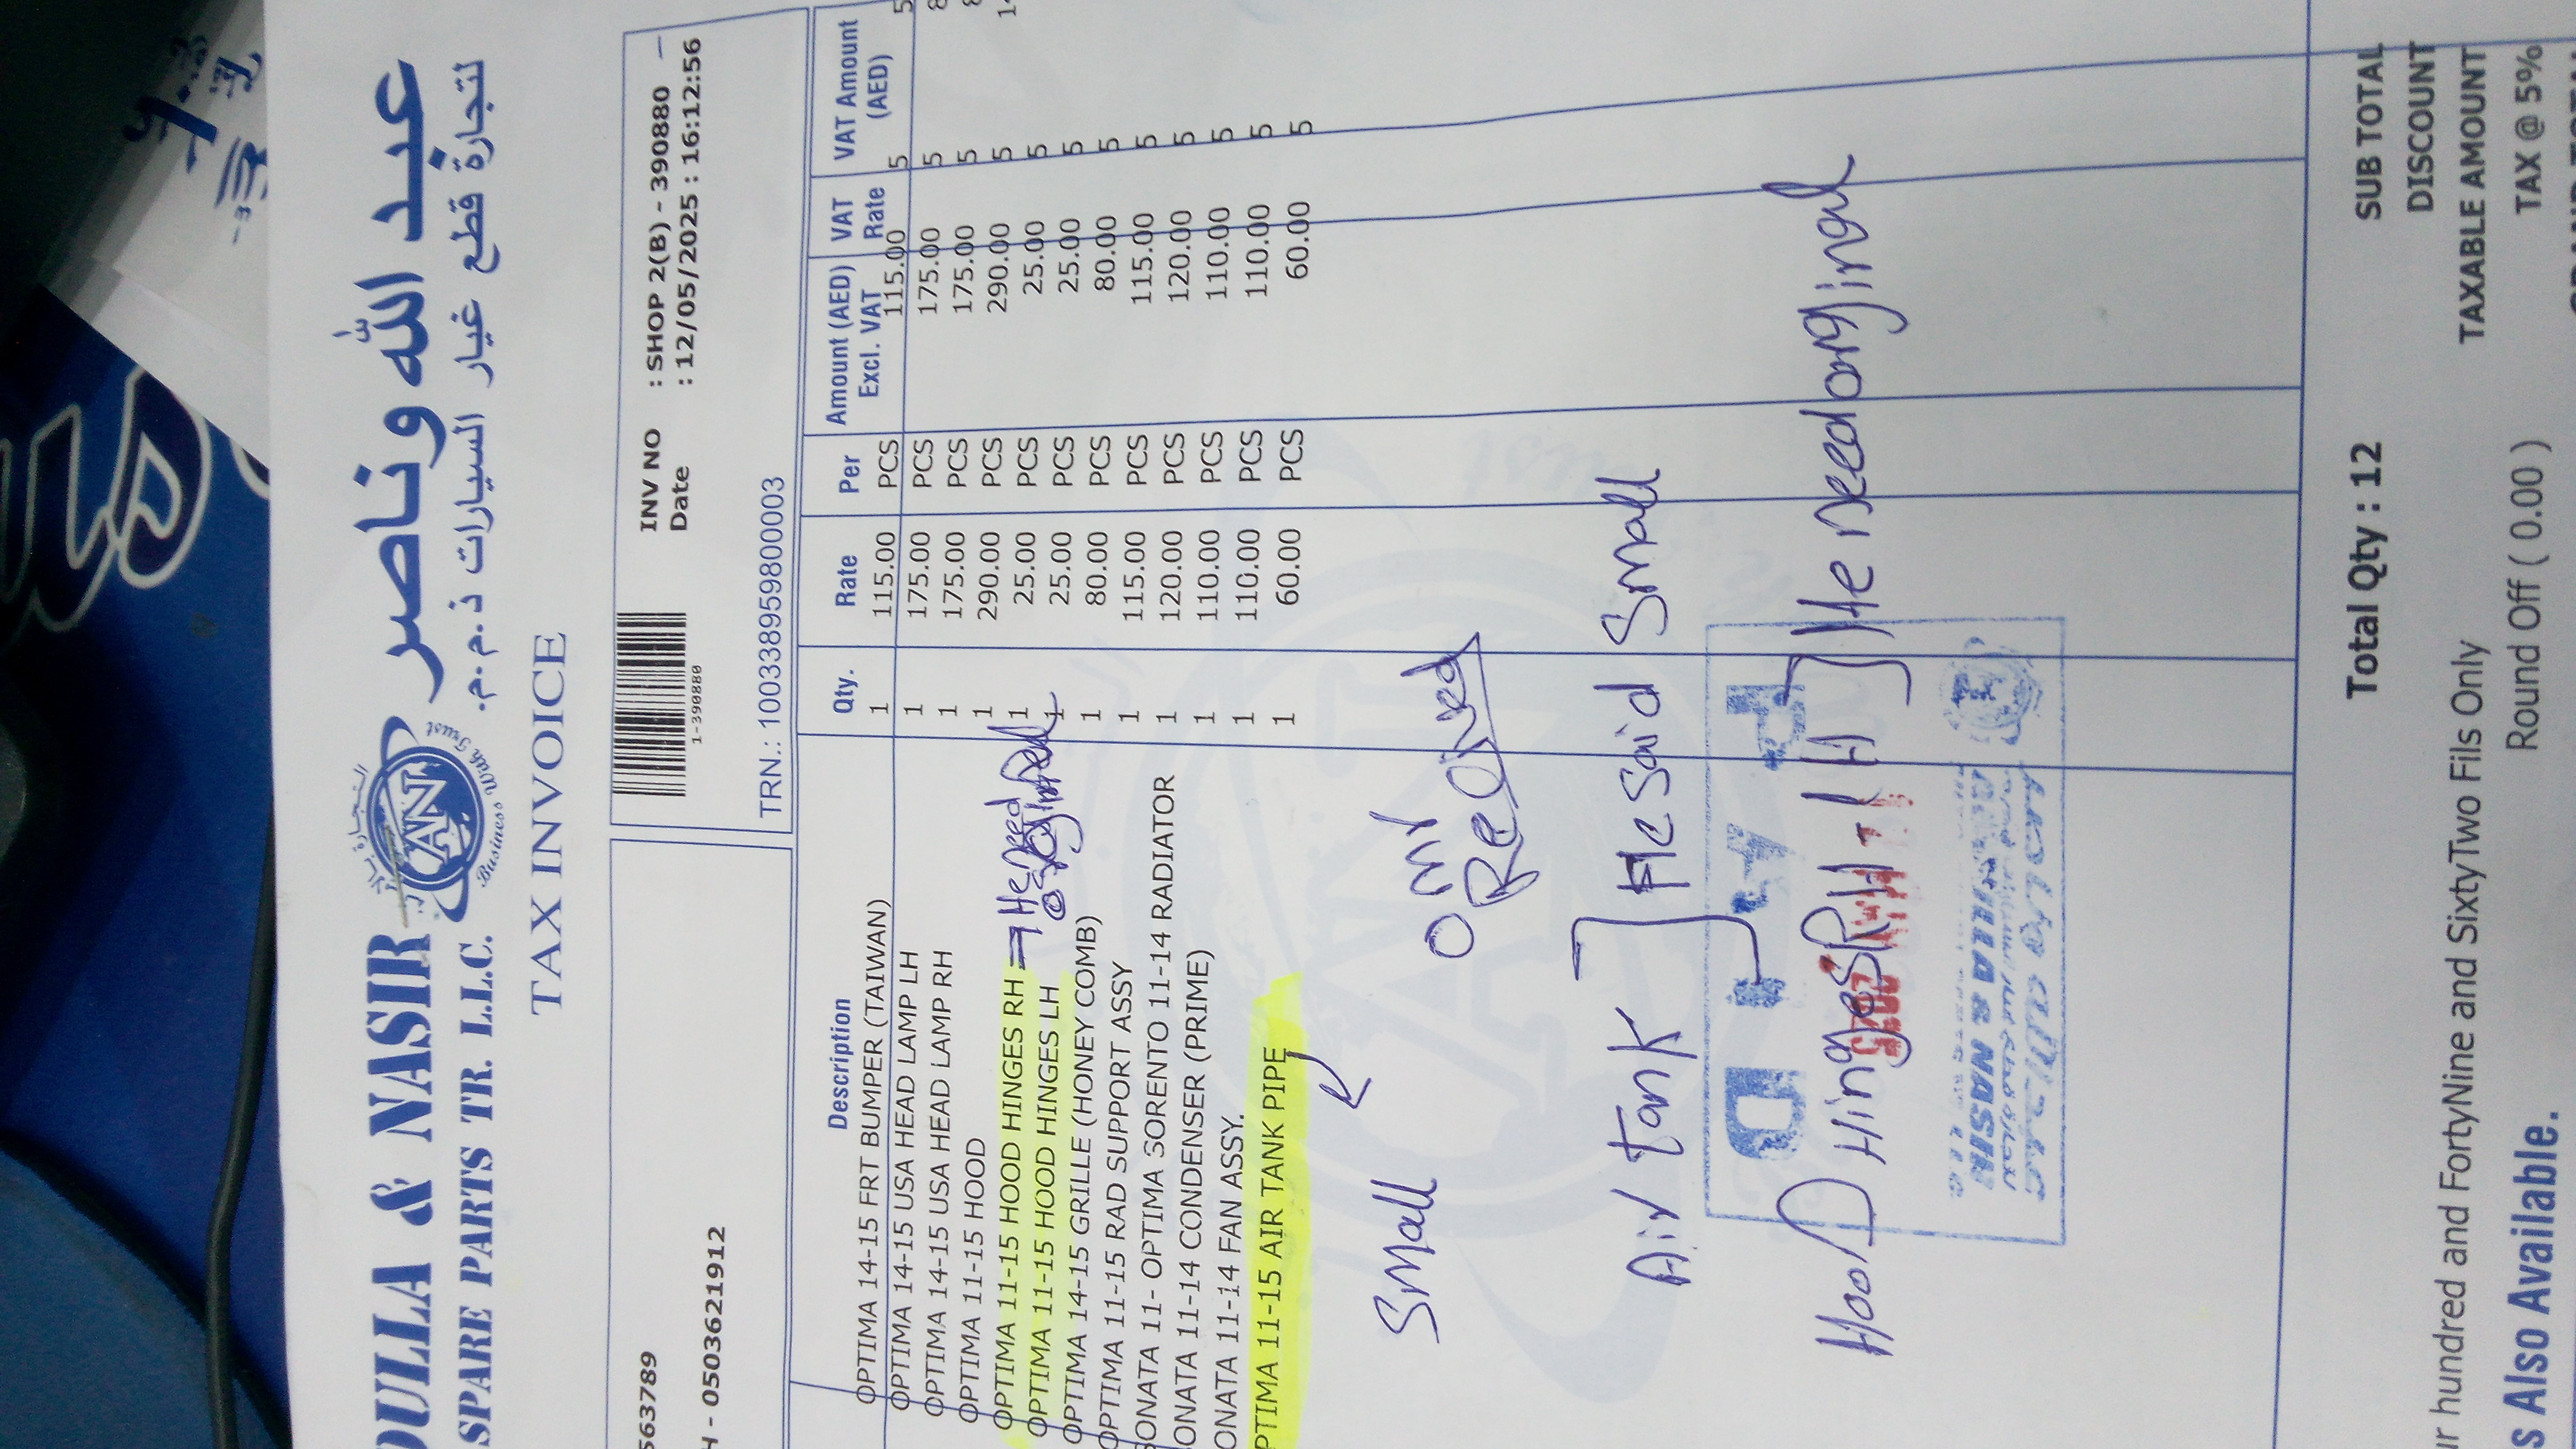 عبد الله وناصر
لتجارة قطع غيار السيارات ذ.م.م.
DULLA & NASIR
SPARE PARTS TR. L.L.C.
AN
Business With Trust
TAX INVOICE
1-390880
INV NO : SHOP 2(B) - 390880
Date : 12/05/2025 : 16:12:56
563789
H - 0503621912
TRN.: 100338959800003
Description Qty. Rate Per Amount (AED) Excl. VAT VAT Rate VAT Amount (AED)
OPTIMA 14-15 FRT BUMPER (TAIWAN) 1 115.00 PCS 115.00 5
OPTIMA 14-15 USA HEAD LAMP LH 1 175.00 PCS 175.00 5
OPTIMA 14-15 USA HEAD LAMP RH 1 175.00 PCS 175.00 5
OPTIMA 11-15 HOOD 1 290.00 PCS 290.00 5
OPTIMA 11-15 HOOD HINGES RH 1 25.00 PCS 25.00 5
He need
OPTIMA 11-15 HOOD HINGES LH 1 25.00 PCS 25.00 5
OPTIMA 14-15 GRILLE (HONEY COMB) 1 80.00 PCS 80.00 5
OPTIMA 11-15 RAD SUPPORT ASSY 1 115.00 PCS 115.00 5
ONATA 11- OPTIMA SORENTO 11-14 RADIATOR 1 120.00 PCS 120.00 5
ONATA 11-14 CONDENSER (PRIME) 1 110.00 PCS 110.00 5
ONATA 11-14 FAN ASSY. 1 110.00 PCS 110.00 5
PTIMA 11-15 AIR TANK PIPE 1 60.00 PCS 60.00 5
Small
Air tank He said Small
HooD Hinges RH-LH He need orginal
Total Qty : 12
SUB TOTAL
DISCOUNT
TAXABLE AMOUNT
TAX @ 5%
r hundred and FortyNine and SixtyTwo Fils Only
Round Off ( 0.00 )
s Also Available.